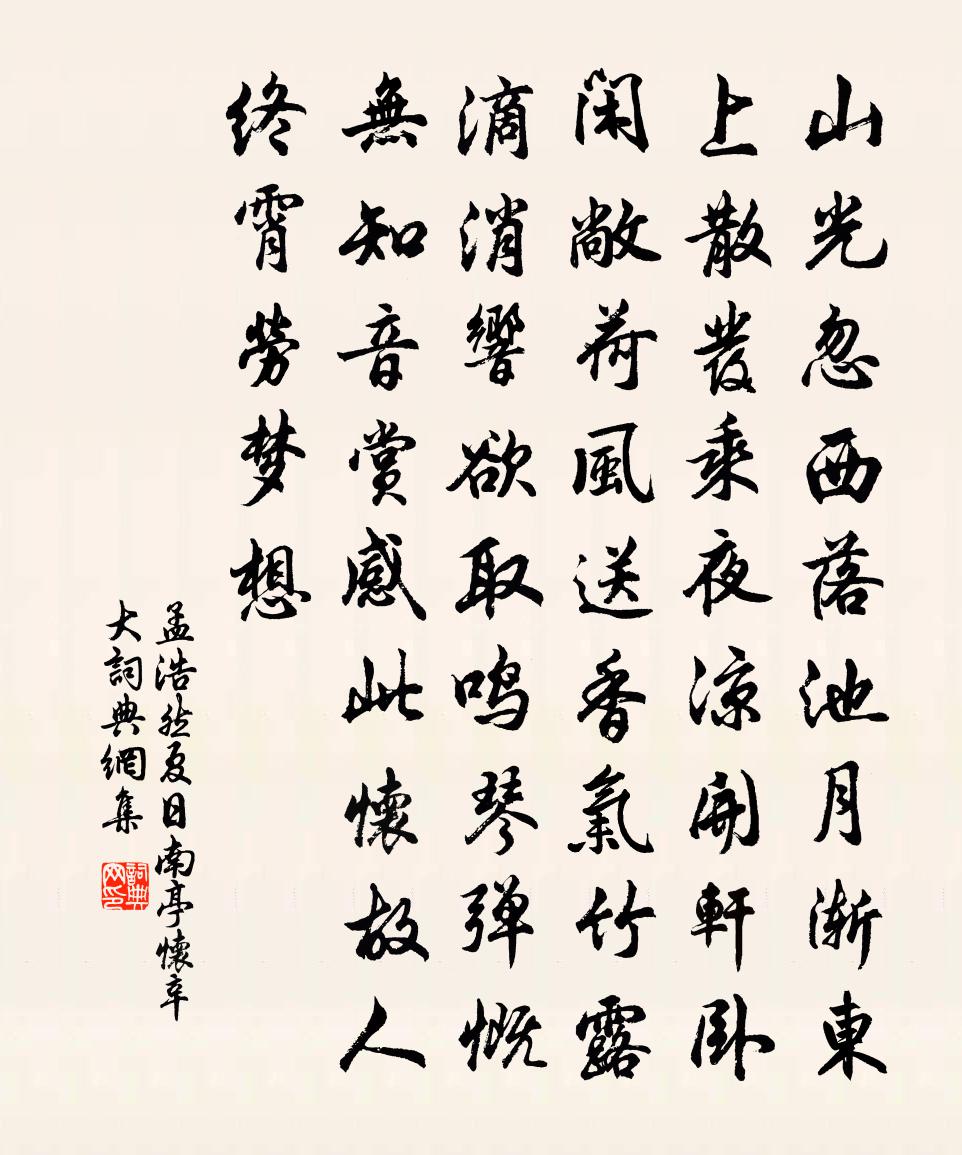 山光忽西落池月渐東
上散发乘夜凉開軒卧
闲敞荷風送香氣竹露
滴消響欲取鸣琴弹慨
無知音賞感此懷故人
终霄勞梦想
孟浩然夏日南亭懷辛
大詞典網集
詞典
网印